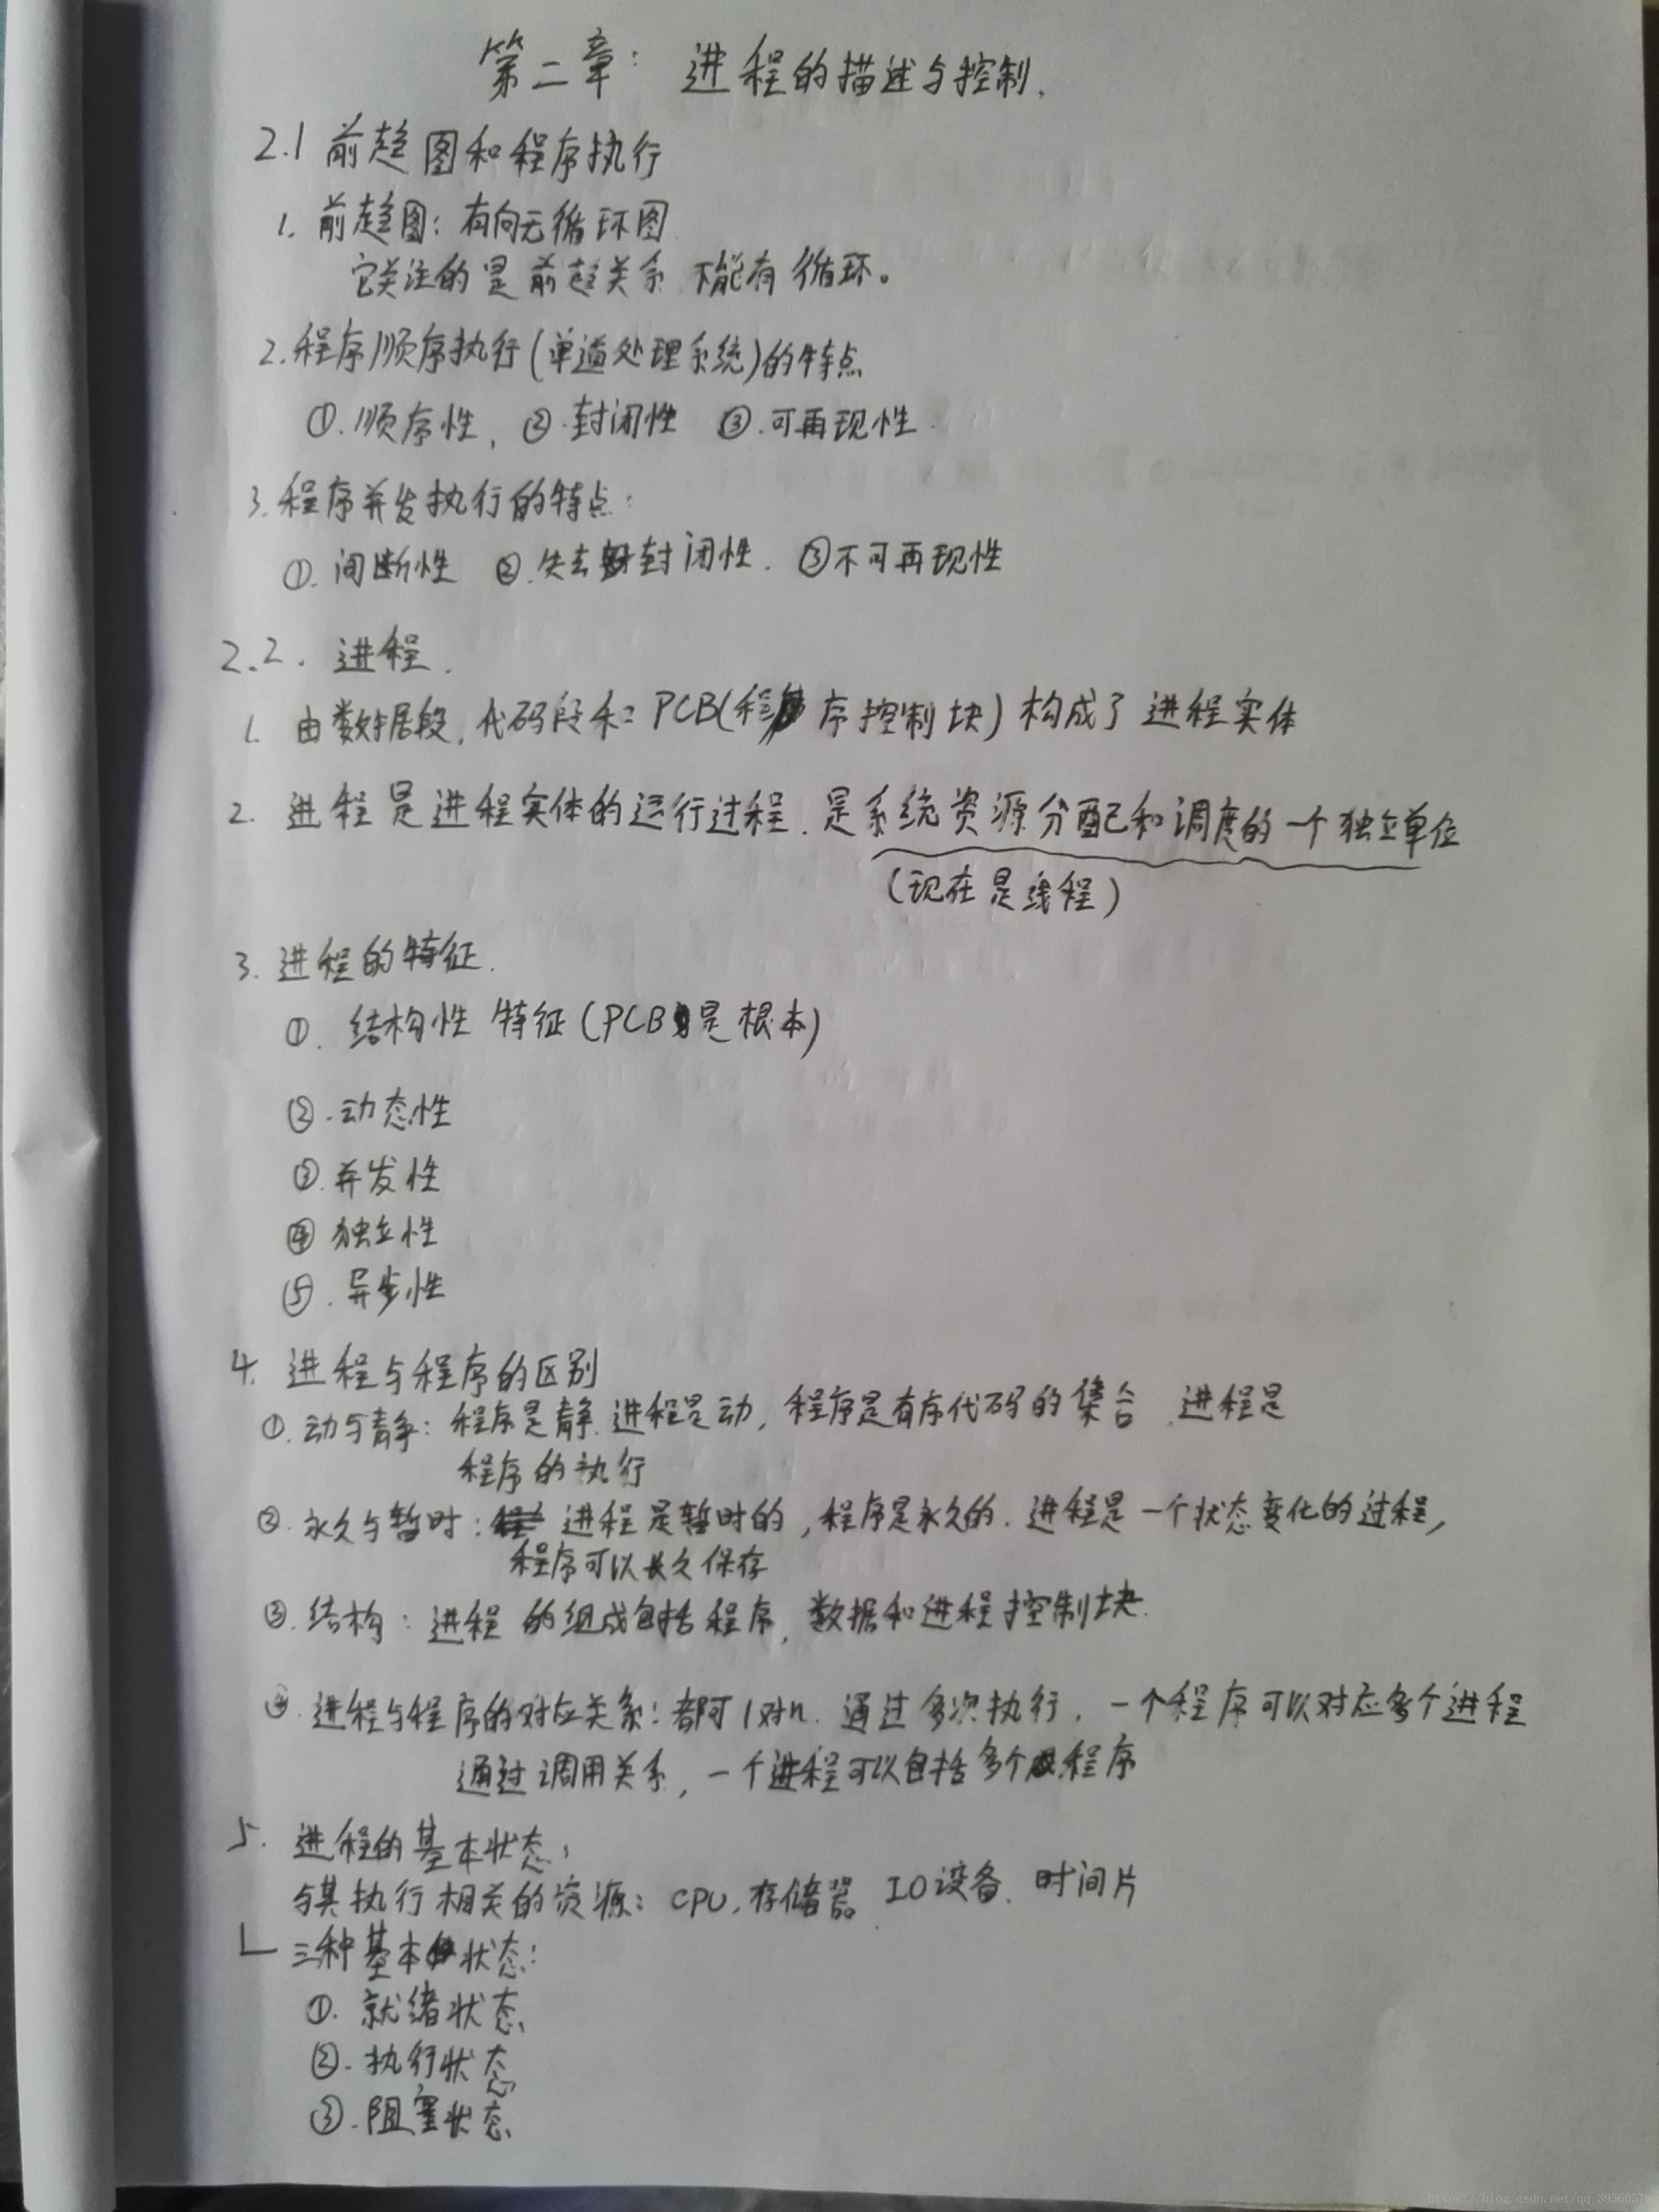 第二章：进程的描述与控制.
2.1 前趋图和程序执行
1. 前趋图：有向无循环图
它关注的是前趋关系 不能有循环。
2.程序顺序执行(单道处理系统)的特点
①.顺序性, ②.封闭性 ③.可再现性
3.程序并发执行的特点:
①.间断性 ②.失去封闭性. ③不可再现性
2.2. 进程.
1. 由数据段,代码段和PCB(程序控制块)构成了进程实体
2. 进程是进程实体的运行过程.是系统资源分配和调度的一个独立单位
(现在是线程)
3. 进程的特征.
①. 结构性特征(PCB是根本)
②.动态性
③.并发性
④ 独立性
⑤.异步性
4. 进程与程序的区别
①.动与静: 程序是静.进程是动,程序是有序代码的集合.进程是
程序的执行
②.永久与暂时: 进程是暂时的,程序是永久的.进程是一个状态变化的过程,
程序可以长久保存
③.结构: 进程的组成包括程序,数据和进程控制块.
④.进程与程序的对应关系:都可1对n.通过多次执行,一个程序可以对应多个进程
通过调用关系,一个进程可以包括多个程序
5. 进程的基本状态:
与其执行相关的资源: CPU,存储器 IO设备.时间片
三种基本状态:
①. 就绪状态
②.执行状态
③.阻塞状态
https://blog.csdn.net/qq_39560579